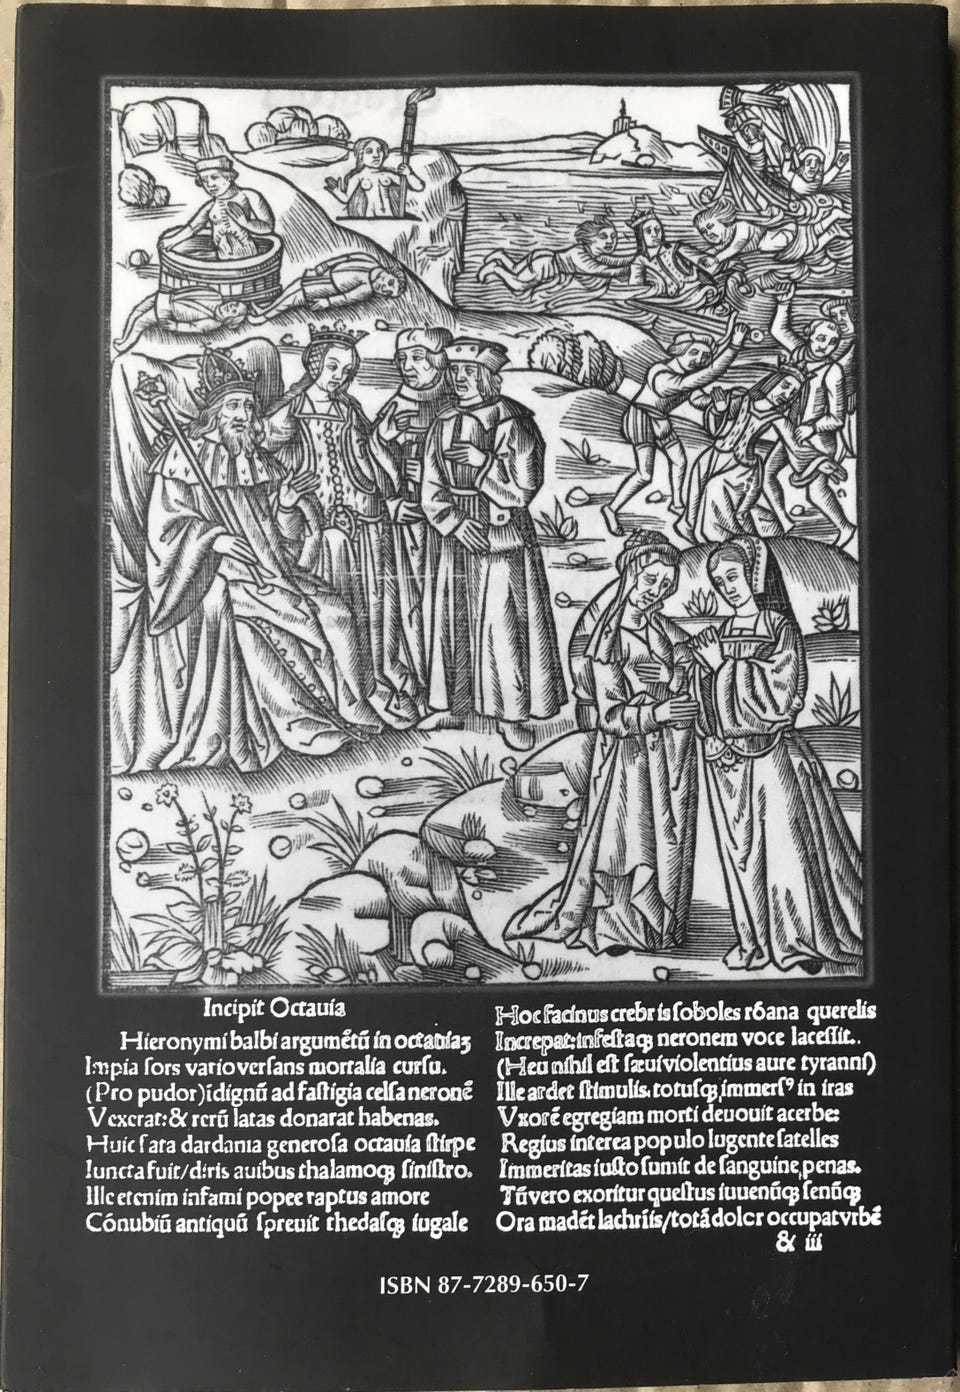 Incipit Octauia
Hieronymi balbi argumẽtũ in octauiaʒ
Impia sors vario versans mortalia cursu.
(Pro pudor) ĩdignũ ad fastigia celsa neronẽ
Vexerat: & rerũ latas donarat habenas.
Huic sata dardania generosa octauia stirpe
Iuncta fuit/diris auibus thalamoqꝫ sinistro.
Ille etenim infami popee raptus amore
Cõnubiũ antiquũ spreuit thedasqꝫ iugale
Hoc facinus crebris soboles rõana querelis
Increpat: infestaqꝫ neronem voce lacessit..
(Heu nihil est sæui violentius aure tyranni)
Ille ardet stimulis. totusqꝫ immersꝰ in iras
Vxorẽ egregiam morti deuouit acerbe:
Regius interea populo lugente satelles
Immeritas iusto sumit de sanguine penas.
Tũ vero exoritur questus iuuenũqꝫ senũqꝫ
Ora madẽt lachriis/totã dolor occupat vrbẽ
& iii
ISBN 87-7289-650-7